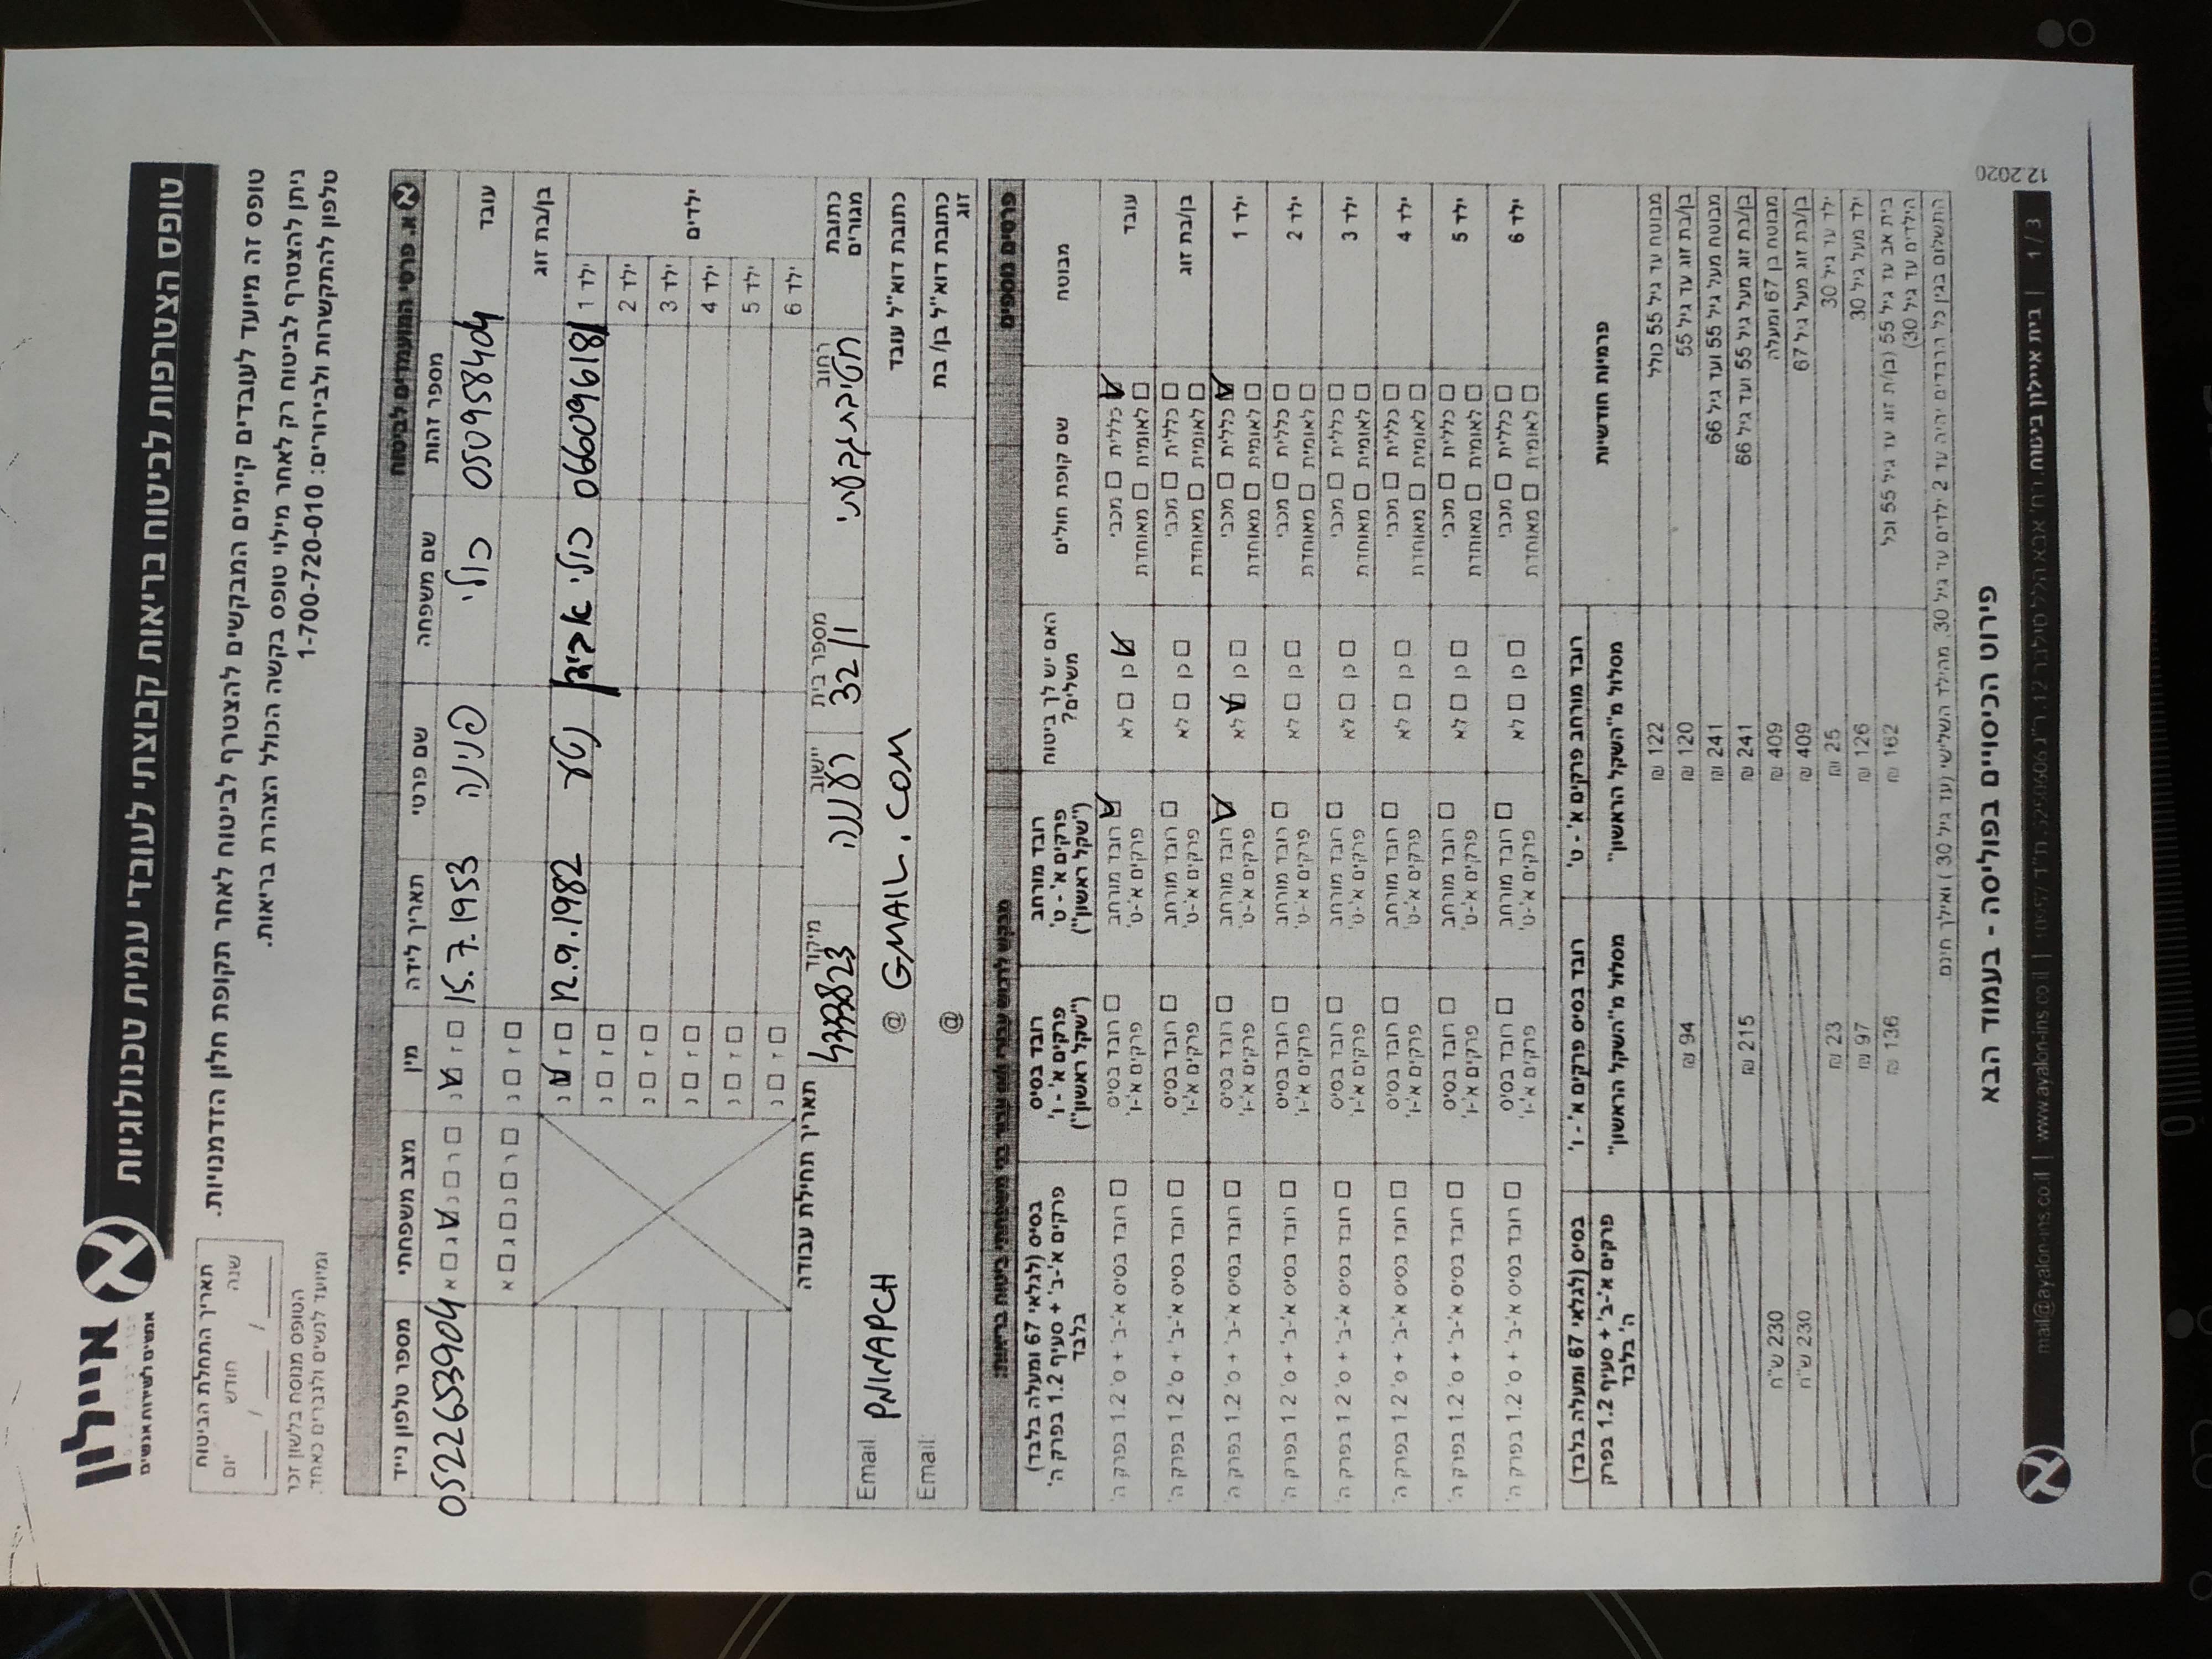 איילון
אנשים לשירות אנשים
טופס הצטרפות לביטוח בריאות קבוצתי לעובדי עמית טכנולוגיות
תאריך התחלת הביטוח
יום חודש שנה
___ / ___ / ___
הטופס מנוסח בלשון זכר
ומיועד לנשים ולגברים כאחד.
טופס זה מיועד לעובדים קיימים המבקשים להצטרף לביטוח לאחר תקופת חלון הזדמנויות.
ניתן להצטרף לביטוח רק לאחר מילוי טופס בקשה הכולל הצהרת בריאות.
טלפון להתקשרות ולבירורים: 1-700-720-010
א' פרטי המועמדים לביטוח
מספר זהות שם משפחה שם פרטי תאריך לידה מין מצב משפחתי מספר טלפון נייד
עובד 050958404 כולי פנינה 15.7.1953 ☐ ז ☑ נ ☐ ר ☐ נ ☑ ג ☐ א 0522653904
בן/בת זוג ☐ ז ☐ נ ☐ ר ☐ נ ☐ ג ☐ א
ילדים
ילד 1 066096181 כולי נטע 12.9.1982 ☐ ז ☑ נ
ילד 2 ☐ ז ☐ נ
ילד 3 ☐ ז ☐ נ
ילד 4 ☐ ז ☐ נ
ילד 5 ☐ ז ☐ נ
ילד 6 ☐ ז ☐ נ
כתובת מגורים רחוב מספר בית 32/1 ישוב רעננה מיקוד תאריך תחילת עבודה
כתובת דוא"ל עובד Email: PNINAPCH @ GMAIL.COM
כתובת דוא"ל בן/ בת זוג Email: @
פרטים נוספים
מבוטח שם קופת חולים האם יש לך ביטוח משלים? רובד מורחב פרקים א' - ט' ("שקל ראשון") רובד בסיס פרקים א' - ו' ("שקל ראשון") בסיס (לגלאי 67 ומעלה בלבד) פרקים א'-ב' + סעיף 1.2 בפרק ה' בלבד
עובד ☑ כללית ☐ מכבי ☐ לאומית ☐ מאוחדת ☑ כן ☐ לא ☑ רובד מורחב פרקים א'-ט' ☐ רובד בסיס פרקים א'-ו' ☐ רובד בסיס א'-ב' + ס' 1.2 בפרק ה'
בן/בת זוג ☐ כללית ☐ מכבי ☐ לאומית ☐ מאוחדת ☐ כן ☐ לא ☐ רובד מורחב פרקים א'-ט' ☐ רובד בסיס פרקים א'-ו' ☐ רובד בסיס א'-ב' + ס' 1.2 בפרק ה'
ילד 1 ☑ כללית ☐ מכבי ☐ לאומית ☐ מאוחדת ☐ כן ☑ לא ☑ רובד מורחב פרקים א'-ט' ☐ רובד בסיס פרקים א'-ו' ☐ רובד בסיס א'-ב' + ס' 1.2 בפרק ה'
ילד 2 ☐ כללית ☐ מכבי ☐ לאומית ☐ מאוחדת ☐ כן ☐ לא ☐ רובד מורחב פרקים א'-ט' ☐ רובד בסיס פרקים א'-ו' ☐ רובד בסיס א'-ב' + ס' 1.2 בפרק ה'
ילד 3 ☐ כללית ☐ מכבי ☐ לאומית ☐ מאוחדת ☐ כן ☐ לא ☐ רובד מורחב פרקים א'-ט' ☐ רובד בסיס פרקים א'-ו' ☐ רובד בסיס א'-ב' + ס' 1.2 בפרק ה'
ילד 4 ☐ כללית ☐ מכבי ☐ לאומית ☐ מאוחדת ☐ כן ☐ לא ☐ רובד מורחב פרקים א'-ט' ☐ רובד בסיס פרקים א'-ו' ☐ רובד בסיס א'-ב' + ס' 1.2 בפרק ה'
ילד 5 ☐ כללית ☐ מכבי ☐ לאומית ☐ מאוחדת ☐ כן ☐ לא ☐ רובד מורחב פרקים א'-ט' ☐ רובד בסיס פרקים א'-ו' ☐ רובד בסיס א'-ב' + ס' 1.2 בפרק ה'
ילד 6 ☐ כללית ☐ מכבי ☐ לאומית ☐ מאוחדת ☐ כן ☐ לא ☐ רובד מורחב פרקים א'-ט' ☐ רובד בסיס פרקים א'-ו' ☐ רובד בסיס א'-ב' + ס' 1.2 בפרק ה'
פרמיות חודשיות רובד מורחב פרקים א' - ט' רובד בסיס פרקים א' - ו' בסיס (לגלאי 67 ומעלה בלבד)
מסלול מ"השקל הראשון" מסלול מ"השקל הראשון" פרקים א'-ב' + סעיף 1.2 בפרק ה' בלבד
מבוטח עד גיל 55 כולל 122 ₪
בן/בת זוג עד גיל 55 120 ₪ 94 ₪
מבוטח מעל גיל 55 ועד גיל 66 241 ₪
בן/בת זוג מעל גיל 55 ועד גיל 66 241 ₪ 215 ₪
מבוטח בן 67 ומעלה 409 ₪ 230 ש"ח
בן/בת זוג מעל גיל 67 409 ₪ 230 ש"ח
ילד עד גיל 30 25 ₪ 23 ₪
ילד מעל גיל 30 126 ₪ 97 ₪
בית אב עד גיל 55 (בן/ת זוג עד גיל 55 וכל הילדים עד גיל 30) 162 ₪ 136 ₪
התשלום בגין כל הרבדים יהיה עד 2 ילדים עד גיל 30. מהילד השלישי (עד גיל 30 ) ואילך חינם.
פירוט הכיסויים בפוליסה - בעמוד הבא
12.2020
1 / 3 | בית איילון ביטוח, רח' אבא הלל סילבר 12, | www.ayalon-ins.co.il | mail@ayalon-ins.co.il